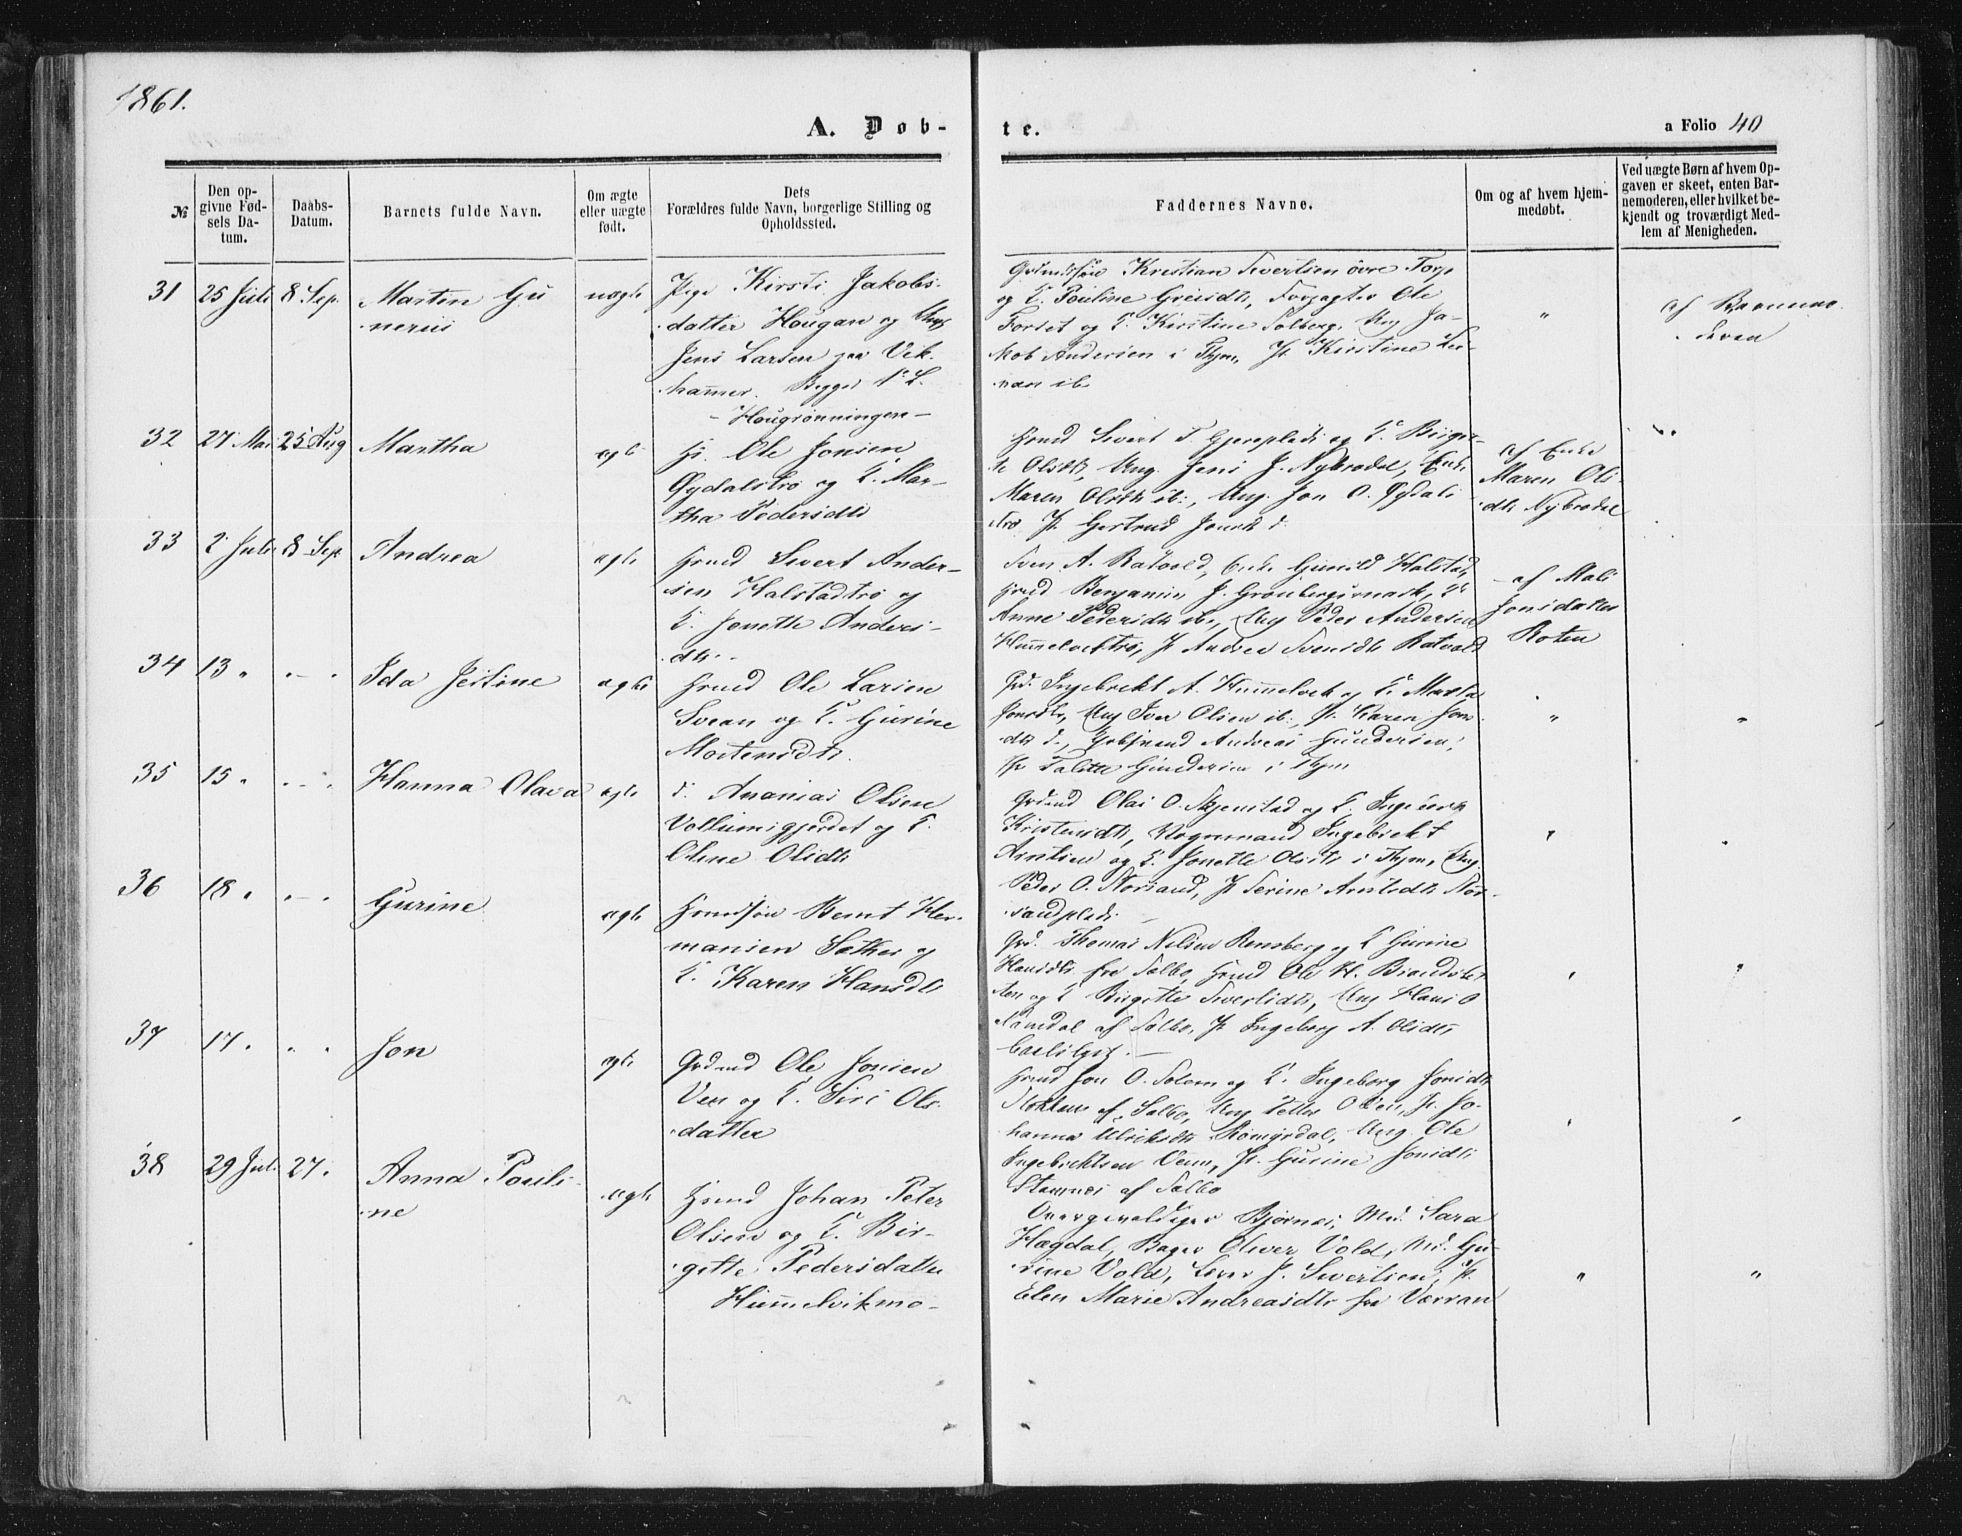 1861.
A. Døb-
te.
a Folio 40
№
Den op-
givne Fød-
sels Da-
tum.
Daabs-
Datum.
Barnets fulde Navn.
Om ægte
eller uægte
født.
Dets
Forældres fulde Navn, borgerlige Stilling og
Opholdssted.
Faddernes Navne.
Om og af hvem hjem-
medøbt.
Ved uægte Børn af hvem Op-
gaven er skeet, enten Bar-
nemoderen, eller hvilket be-
kjendt og troværdigt Med-
lem af Menigheden.
31
25 Juli
8 Sep.
Martin Gu
nerius
uægte
Pige Kirsti Jakobs-
datter Hougan og Ung
Jens Larsen paa Vik-
hamer. Begges 1ste L.
Kristian Sivertsen øvre Torp
og K. Pauline Forpagter Ole
Forset og K. Kirstine Solberg, Ung Ja-
kob Andersen i Hjem, P. Kirstine
nan ib
"
af Barnemo
deren
32
27 Mai
25 Aug
Martha
ægte
- Hougrønningen -
Hs. Ole Jonsen
og K. Mar-
tha Pedersdtr
Hmd Sivert og K. Birgit-
te Olsdtr, Ung. Jens J. Nybrodal, Enke
Maren Olsdtr ib:, Ung. Jon O.
P. Gertrud
af Enke
Maren Ols
dtr Nybrodal
33
2 Juli
8 Sep.
Andrea
ægte
Hmd Sivert Ander-
sen Halstadtrø og
K. Jonette Anders-
dtr.
Sven A. Ratvold, Enke Gunild Halstad,
Hmd Benjamin J. K.
Anne Pedersdtr ib., Ung Peder Andersen
P. Andrea Svendsdtr Ratvold
af Mali
Jonsdatter
Roten
34
13 "
" - "
Ida Jestine
ægte
Hmd Ole Larsen
Svean og K. Gurine
Mortensdtr.
Grd. Ingebrekt A. og K. Marta
Jonsdtr, Ung Iver Olsen ib:, P. Karen Jons
dtr Andreas Gundersen,
P. Gundersen i Hjem
"
"
35
15 "
" - "
Hanna Olava
ægte
Ananias Olsen
og K.
Oline Olsdtr
Olai O. og K. Ingeborg
Kristensdtr, Vognmand Ingebrekt
Arntsen og K. Jonette Olsdtr i Hjem, Ung
Peder O. Storsand, P. Serine Arntsdtr Stor-
sandplads.
"
"
36
18 "
" - "
Gurine
ægte
Hmdsøn Bernt Her-
mansen Sæther og
K. Karen Hansdtr
Grd. Thomas Nilsen Rensberg og K Gurine
Hansdtr fra Selbo, Hmd Ole H.
og K Birgitte Sivertsdtr, Ung Hans O
af Selbo, P. Ingeborg A. Olsdtr
"
"
37
17 "
" "
Jon
ægte
Grdmd Ole Jonsen
Ven og K. Siri Ols-
datter
Hmd Jon O. og K. Ingeborg Jonsdtr
af Selbo, Ung Petter Olsen, P. Jo-
hanna Ulriksdtr Ung. Ole
Ingebrektsen Venn, P. Gurine Jonsdtr
Stamnes af Selbo
"
"
38
29 Jul.
27.
Anna Pauli-
ne
ægte
Hmd Johan Peter
Olsen og K. Bir-
gitte Pedersdatter
Overgevaldiger Bjørnes, Md. Sara
Hægdal, Bager Oliver Vold, Md. Gu-
rine Vold, J. Sivertsen, P.
Elen Marie Andreasdtr fra Værran
"
"